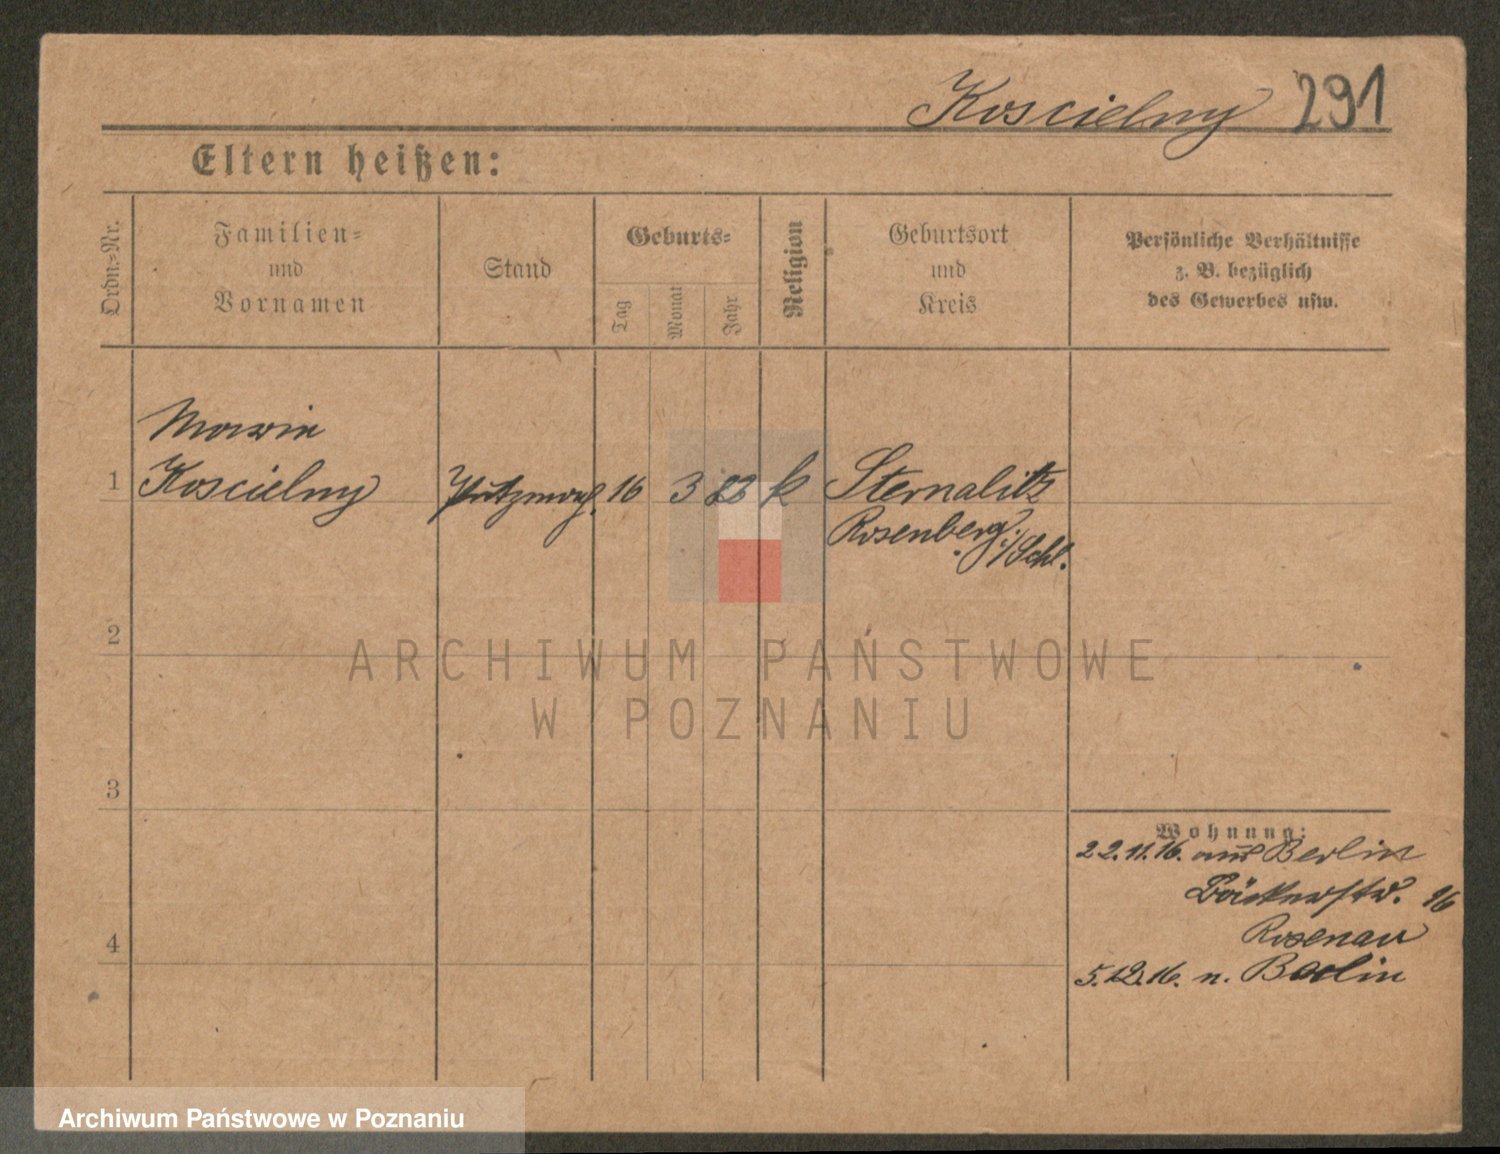 Koscielny 291
Eltern heißen:
Ordn.-Nr.
Familien-
und
Vornamen
Stand
Geburts-
Tag
Monat
Jahr
Religion
Geburtsort
und
Kreis
Persönliche Verhältnisse
z. B. bezüglich
des Gewerbes usw.
Marie
1 Koscielny Putzmach. 16 3 k Sternalitz
Rosenberg i/Schl.
2
3
4
Wohnung:
22.11.16. aus Berlin
Bäckerstr. 16
Rosenau
5.12.16. n. Berlin
ARCHIWUM PAŃSTWOWE
W POZNANIU
Archiwum Państwowe w Poznaniu